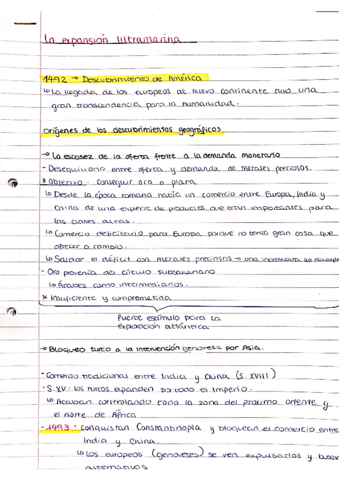 La expansión Ultramarina
1492 → Descubrimiento de América
↳ La llegada de los europeos al nuevo continente tuvo una
gran transcendencia para la humanidad.
Orígenes de los descubrimientos geográficos
→ La escasez de la oferta frente a la demanda monetaria
- Desequilibrio entre oferta y demanda de metales preciosos.
* Objetivo: conseguir oro o plata
↳ Desde la época romana hacía un comercio entre Europa, India y
China de una especie de productos que eran importantes para
las clases altas.
↳ Comercio deficitario para Europa porque no tenía gran cosa que
ofrecer a cambio.
↳ Saldar lo déficit con metales preciosos → una incrementa
- Oro provenía del círculo subsahariano
↳ Árabes como intermediarios.
* Insuficiente y comprometida
Fuerte estímulo para la
exploración atlántica
→ Bloqueo turco a la intervención genovesa por Asia.
- Comercio tradicional entre India y China (S. XVIII)
- S. XV los turcos expanden por todo el Imperio.
↳ Acaban controlando toda la zona del próximo oriente y
el norte de África
- 1493: conquistan Constantinopla y bloquean el comercio entre
India y China.
↳ Los europeos (genoveses) se ven expulsados y buscar
alternativas